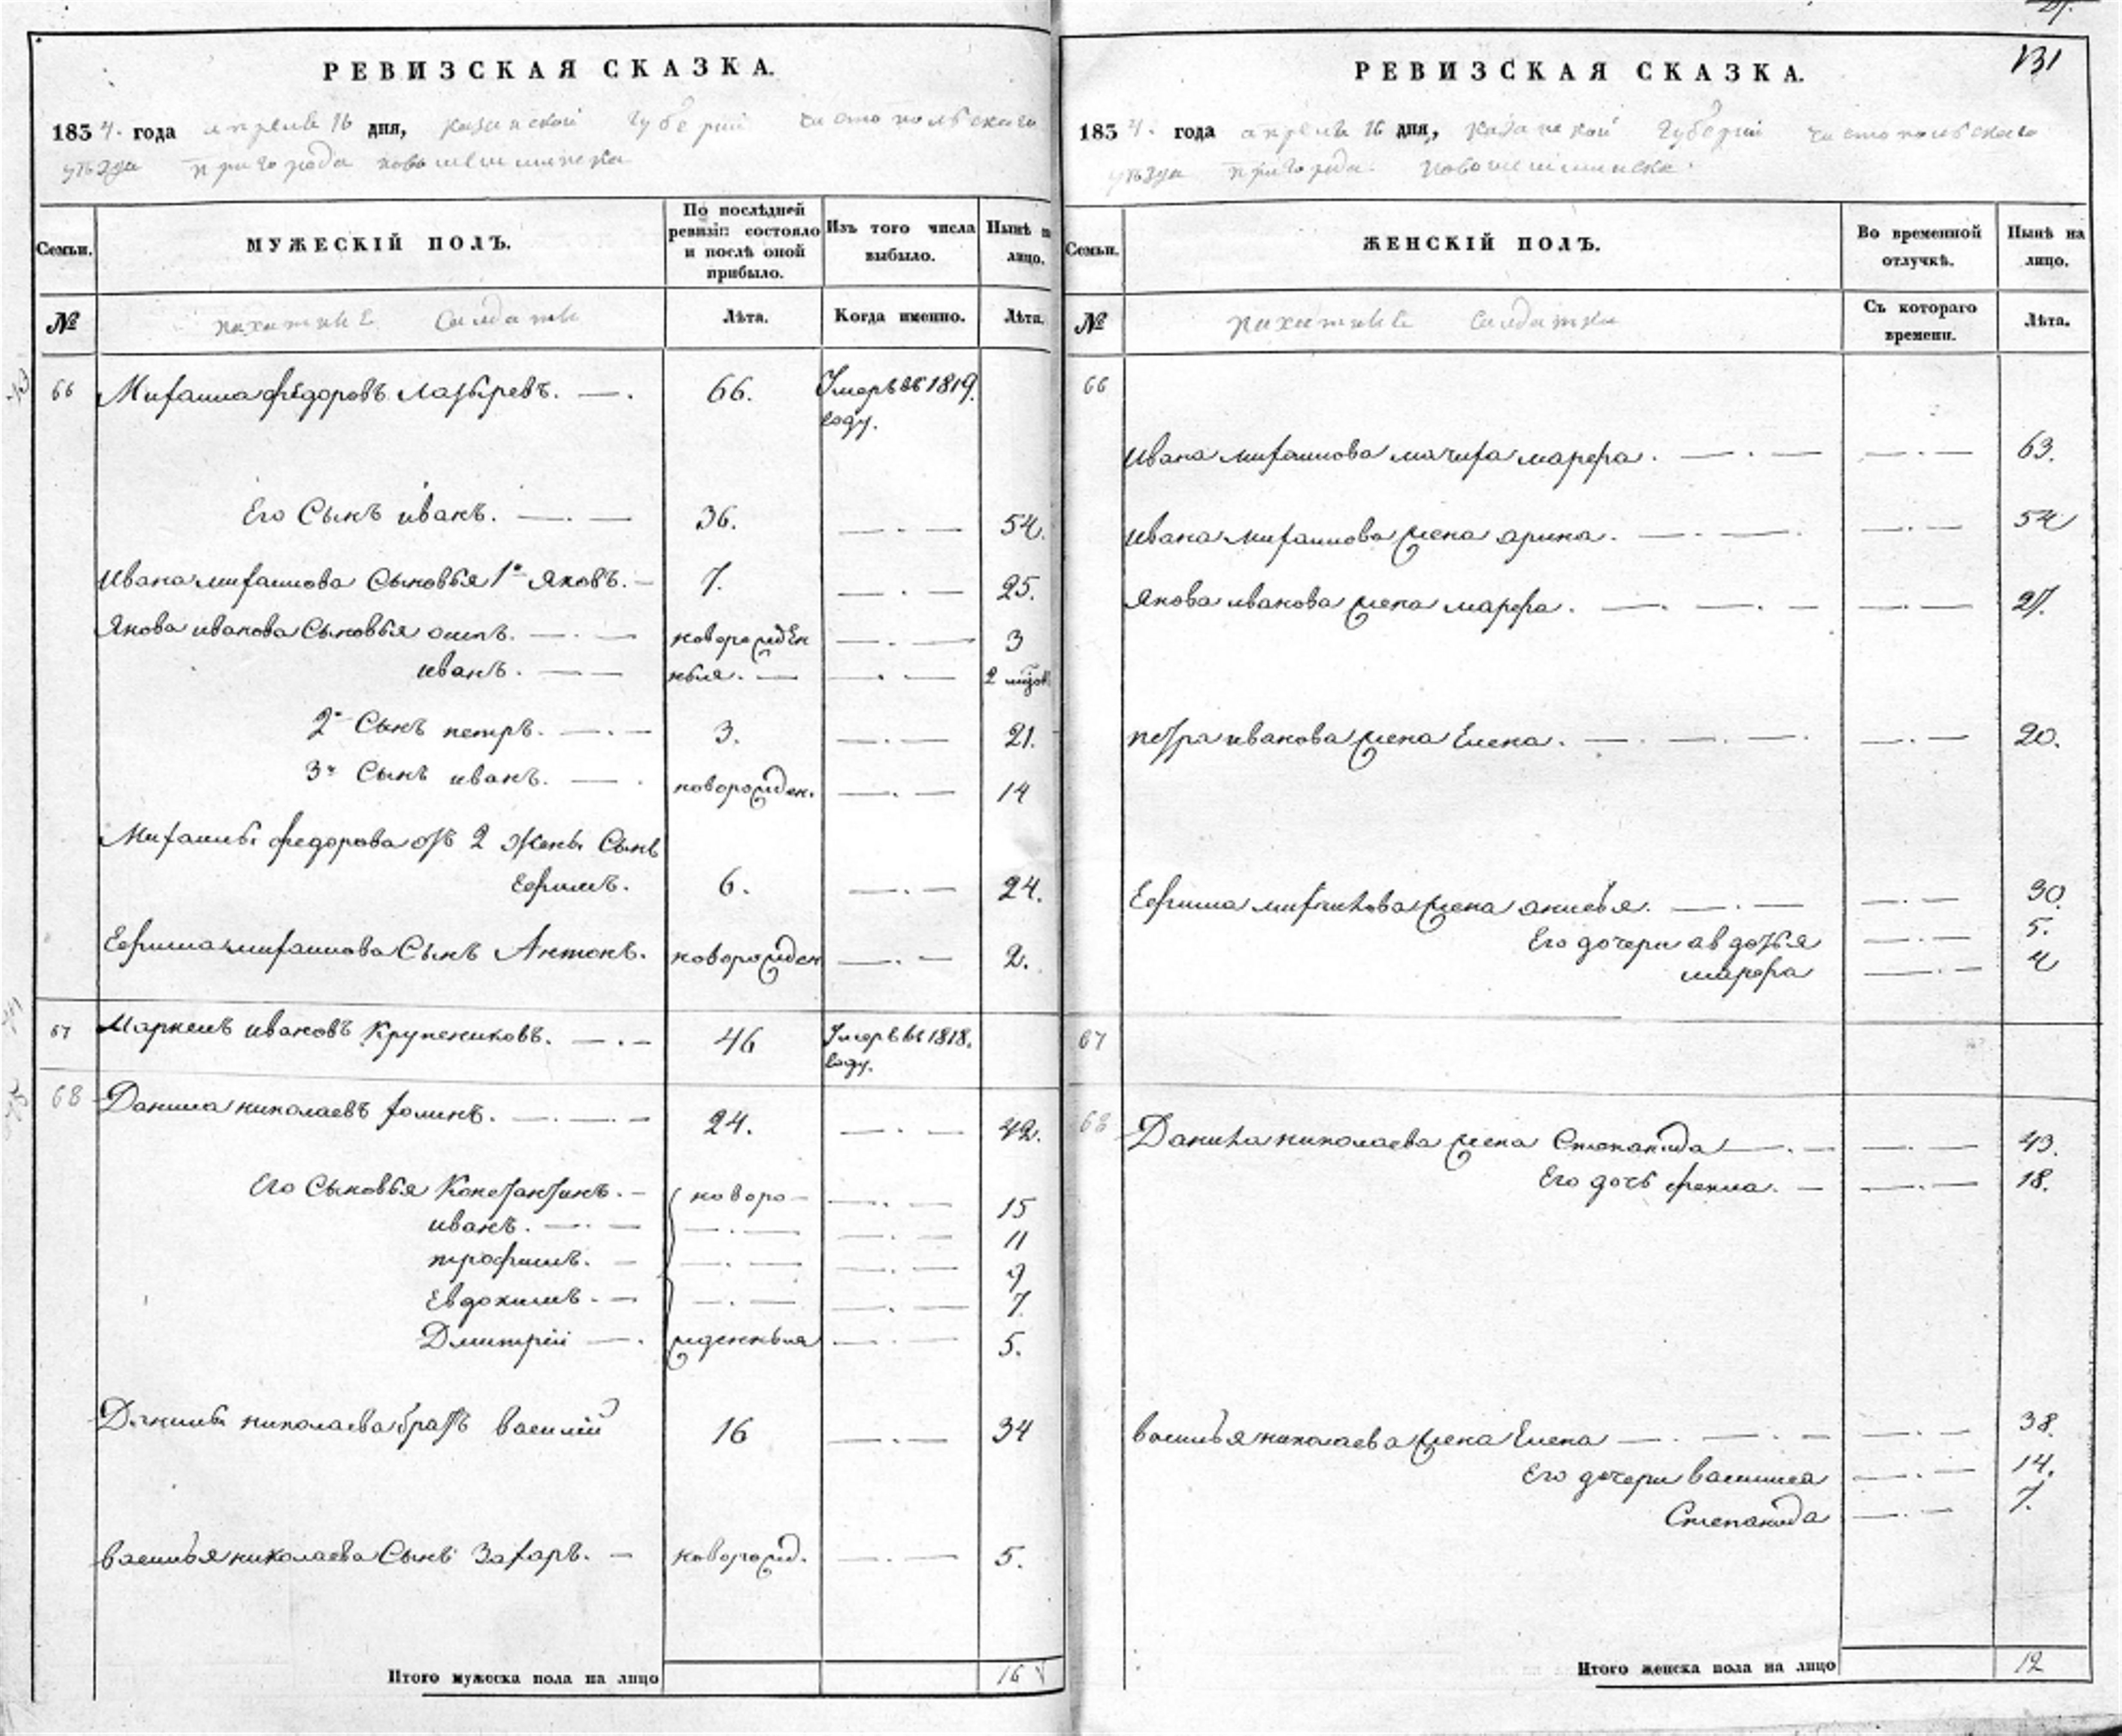 РЕВИЗСКАЯ СКАЗКА.
1834. года апреля 16 дня, казанской губерніи чистопольскаго
уѣзда пригорода новошешминска
Семьи.
МУЖЕСКІЙ ПОЛЪ.
По послѣдней ревизіи состояло и послѣ оной прибыло.
Изъ того числа выбыло.
Нынѣ на лицо.
№
пахатные Солдаты
Лѣта.
Когда именно.
Лѣта.
66 Михаила федоровъ Лазыревъ. 66. Умеръ въ 1819.
году.
Его Сынъ иванъ. 36. 54.
Ивана михаилова Сыновья 1й Яковъ. 7. 25.
Якова иванова Сыновья осипъ. новорожден 3
иванъ. ныя. 2 мцов
2й Сынъ петръ. 3. 21.
3й Сынъ иванъ. новорожден. 14
Михаилы федорова отъ 2 жены Сынъ
Ефимъ. 6. 24.
Ефима михаилова Сынъ Антонъ. новорожден 2.
67 Маркелъ ивановъ Крупениковъ. 46 Умеръ въ 1818.
году.
68 Данила николаевъ фолинъ. 24. 42.
Его Сыновья Константинъ. новоро 15
иванъ. 11
трофимъ. 9
Евдокимъ. 7.
Дмитрей жденныя 5.
Данилы николаева братъ василій 16 34
василья николаева Сынъ Захаръ. новорожд. 5.
Итого мужеска пола на лицо 16
131
РЕВИЗСКАЯ СКАЗКА.
1834. года апреля 16 дня, казанской губерніи чистопольскаго
уѣзда пригорода новошешминска.
Семьи.
ЖЕНСКІЙ ПОЛЪ.
Во временной отлучкѣ.
Нынѣ на лицо.
№
пахатные Солдатки
Съ котораго времени.
Лѣта.
66
Ивана михаилова мачиха марфа. 63.
Ивана михаилова жена арина. 54
Якова иванова жена марфа. 27.
петра иванова жена Елена. 20.
Ефима михаилова жена анисья. 30.
Его дочери авдотья 5.
марфа 4
67
68 Данила николаева жена Степанида 43.
Его дочь фекла. 18.
василья николаева жена Елена 38.
Его дочери василиса 14.
Степанида 7.
Итого женска пола на лицо 12